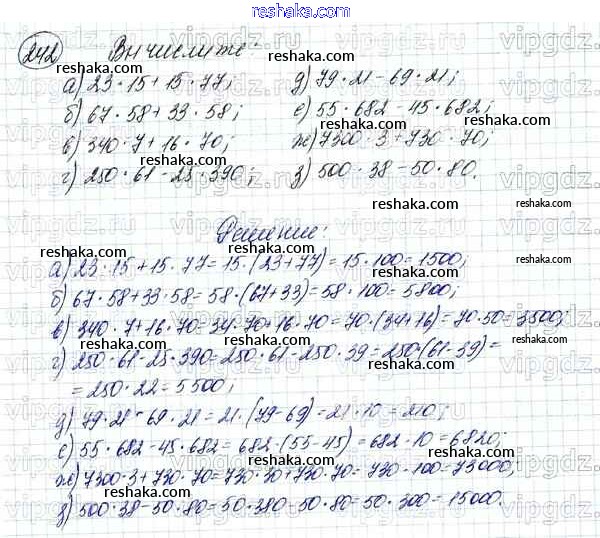 reshaka.com
242 Вычислите:
а) 23·15+15·77; д) 79·21-69·21;
б) 67·58+33·58; е) 55·682-45·682;
в) 340·7+16·70; ж) 7300·3+730·70;
г) 250·61-25·390; з) 500·38-50·80.
Решение:
а) 23·15+15·77=15·(23+77)=15·100=1500;
б) 67·58+33·58=58·(67+33)=58·100=5800;
в) 340·7+16·70=34·70+16·70=70·(34+16)=70·50=3500;
г) 250·61-25·390=250·61-250·39=250·(61-39)=
=250·22=5500;
д) 79·21-69·21=21·(79-69)=21·10=210;
е) 55·682-45·682=682·(55-45)=682·10=6820;
ж) 7300·3+730·70=730·30+730·70=730·100=73000;
з) 500·38-50·80=50·380-50·80=50·300=15000.